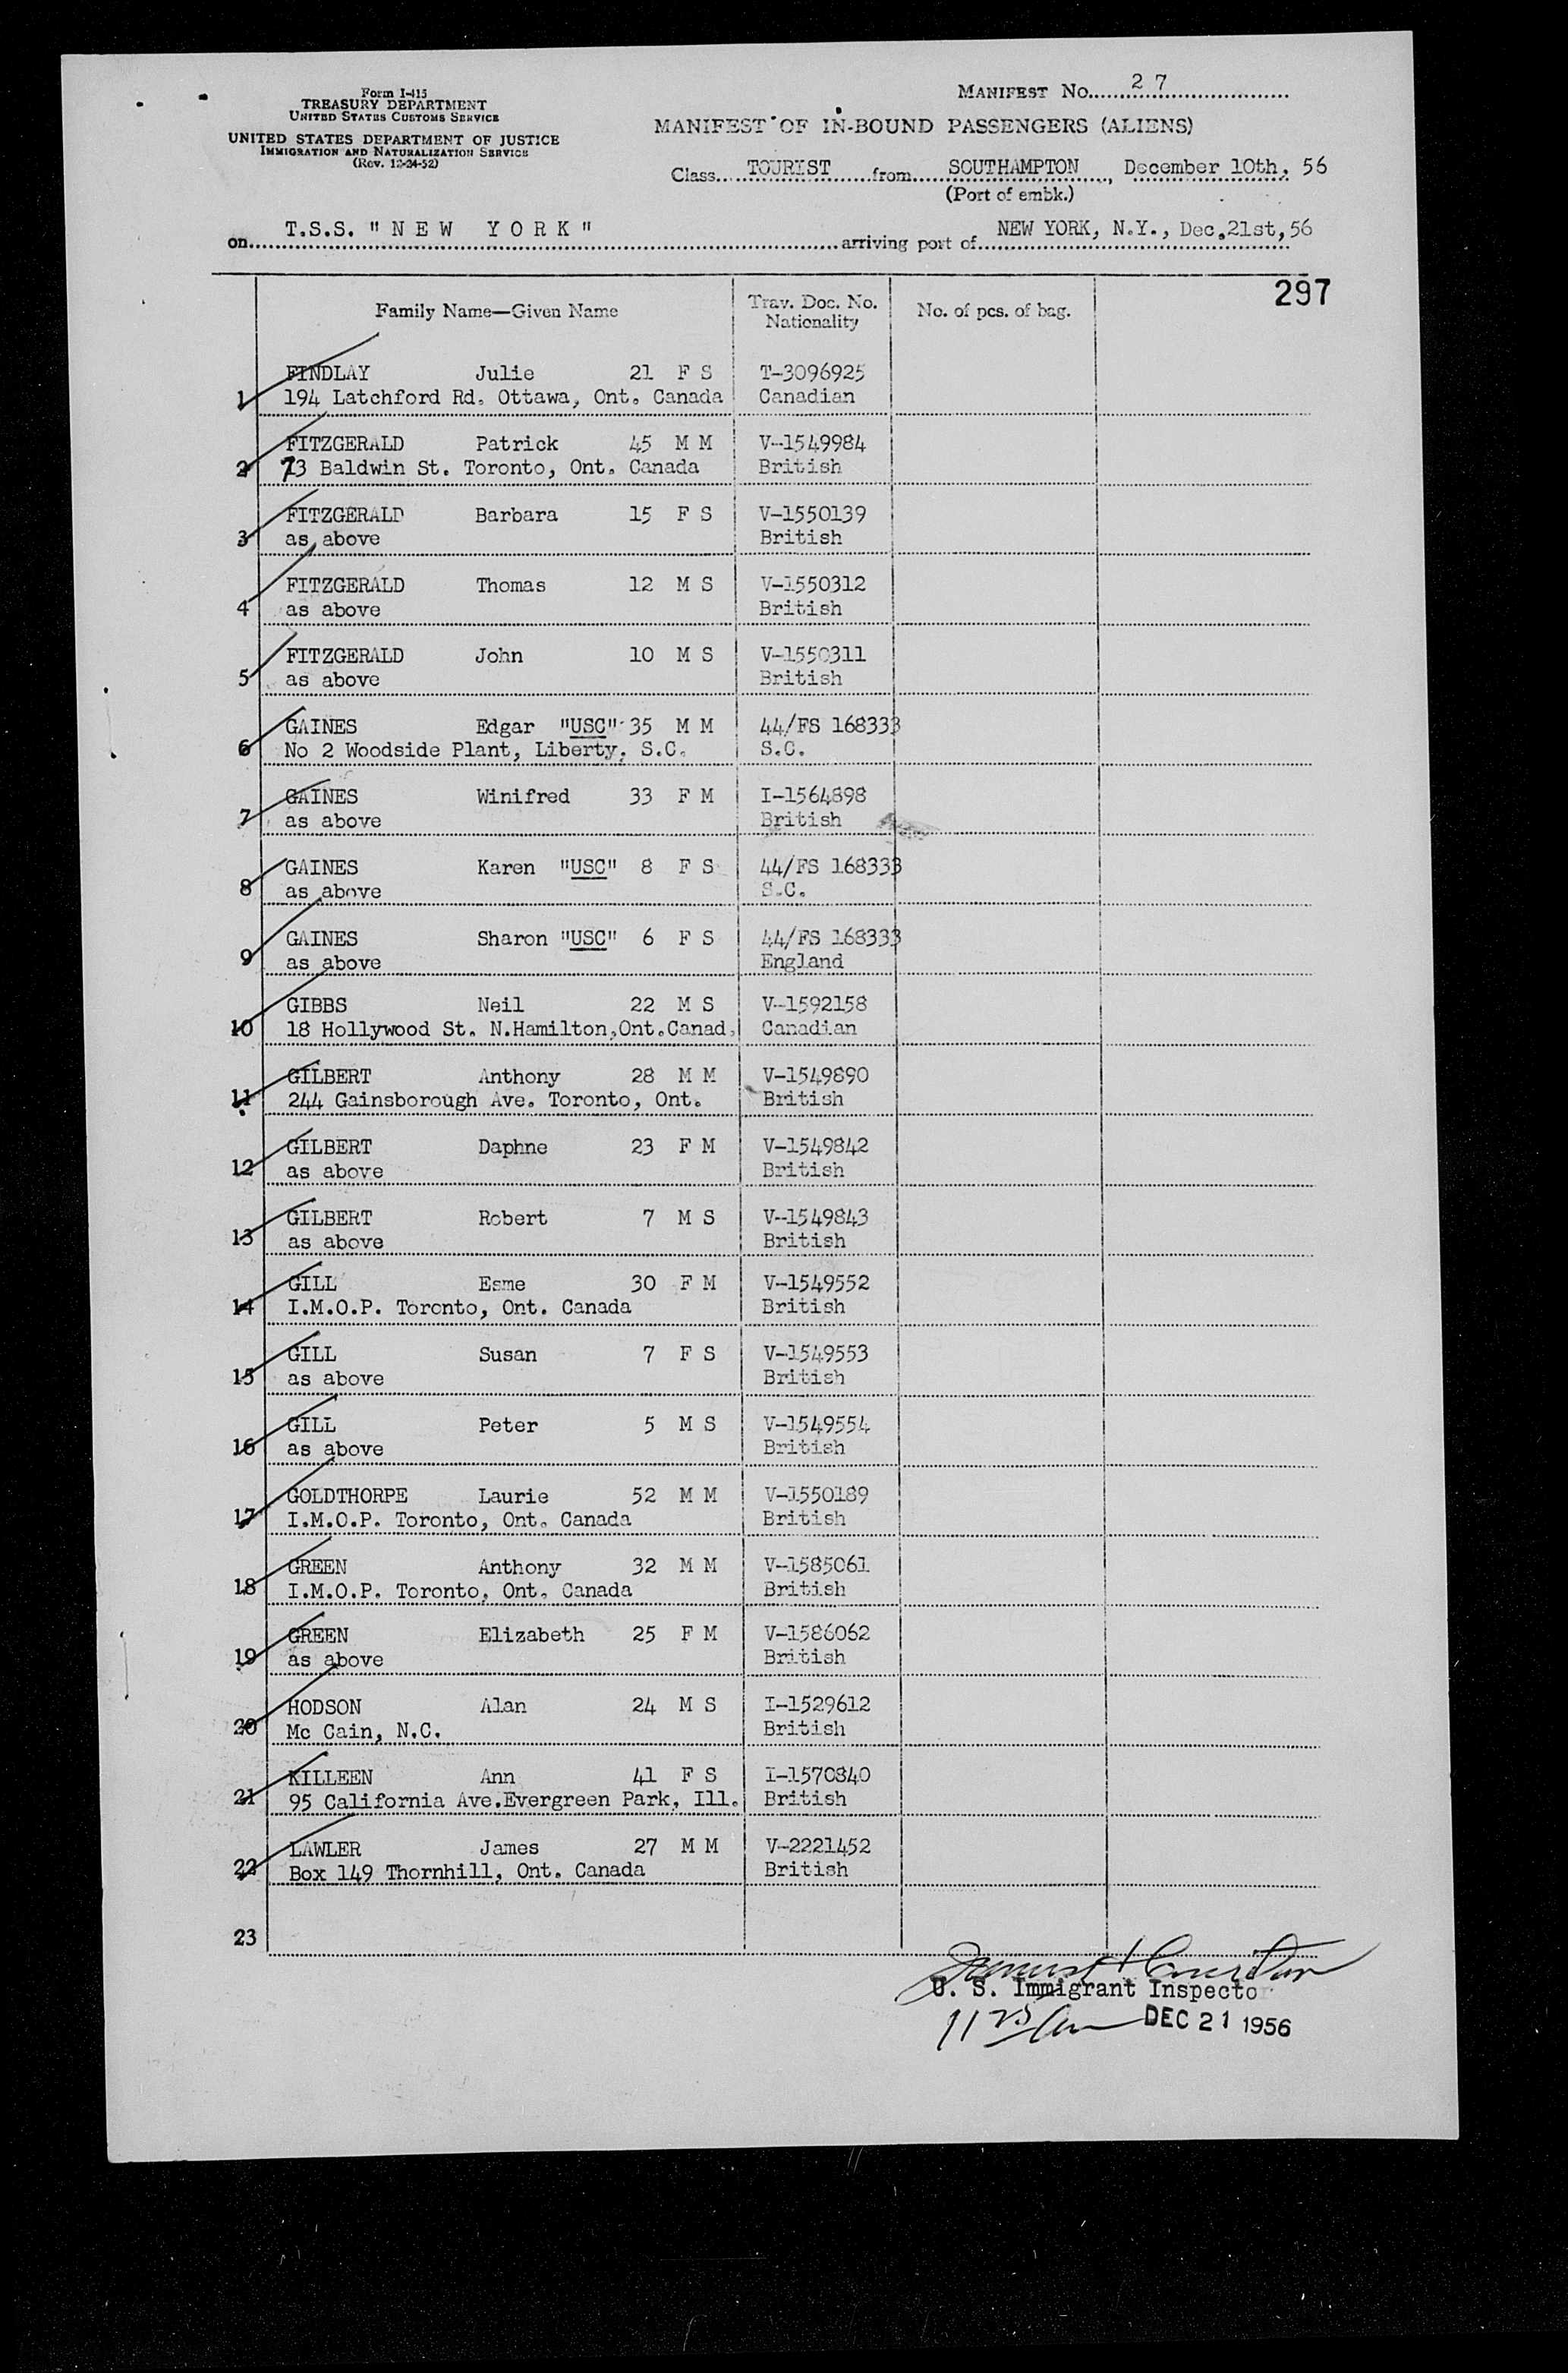 Form I-415
TREASURY DEPARTMENT
UNITED STATES CUSTOMS SERVICE
UNITED STATES DEPARTMENT OF JUSTICE
IMMIGRATION AND NATURALIZATION SERVICE
(Rev. 12-24-52)
MANIFEST No. 27
MANIFEST OF IN-BOUND PASSENGERS (ALIENS)
Class TOURIST from SOUTHAMPTON, December 10th, 56
(Port of embk.)
on T.S.S. "NEW YORK" arriving port of NEW YORK, N.Y., Dec,21st,56
297
Family Name—Given Name Trav. Doc. No. Nationality No. of pcs. of bag.
FINDLAY Julie 21 F S T-3096925
1 194 Latchford Rd. Ottawa, Ont. Canada Canadian
FITZGERALD Patrick 45 M M V-1549984
2 73 Baldwin St. Toronto, Ont. Canada British
FITZGERALD Barbara 15 F S V-1550139
3 as above British
FITZGERALD Thomas 12 M S V-1550312
4 as above British
FITZGERALD John 10 M S V-1550311
5 as above British
GAINES Edgar "USC" 35 M M 44/FS 168333
6 No 2 Woodside Plant, Liberty, S.C. S.C.
GAINES Winifred 33 F M I-1564898
7 as above British
GAINES Karen "USC" 8 F S 44/FS 168333
8 as above S.C.
GAINES Sharon "USC" 6 F S 44/FS 168333
9 as above England
GIBBS Neil 22 M S V-1592158
10 18 Hollywood St. N.Hamilton,Ont.Canad. Canadian
GILBERT Anthony 28 M M V-1549890
11 244 Gainsborough Ave. Toronto, Ont. British
GILBERT Daphne 23 F M V-1549842
12 as above British
GILBERT Robert 7 M S V-1549843
13 as above British
GILL Esme 30 F M V-1549552
14 I.M.O.P. Toronto, Ont. Canada British
GILL Susan 7 F S V-1549553
15 as above British
GILL Peter 5 M S V-1549554
16 as above British
GOLDTHORPE Laurie 52 M M V-1550189
17 I.M.O.P. Toronto, Ont. Canada British
GREEN Anthony 32 M M V-1585061
18 I.M.O.P. Toronto, Ont. Canada British
GREEN Elizabeth 25 F M V-1586062
19 as above British
HODSON Alan 24 M S I-1529612
20 Mc Cain, N.C. British
KILLEEN Ann 41 F S I-1570840
21 95 California Ave.Evergreen Park, Ill. British
LAWLER James 27 M M V-2221452
22 Box 149 Thornhill, Ont. Canada British
23
U. S. Immigrant Inspector
11 25 am DEC 21 1956